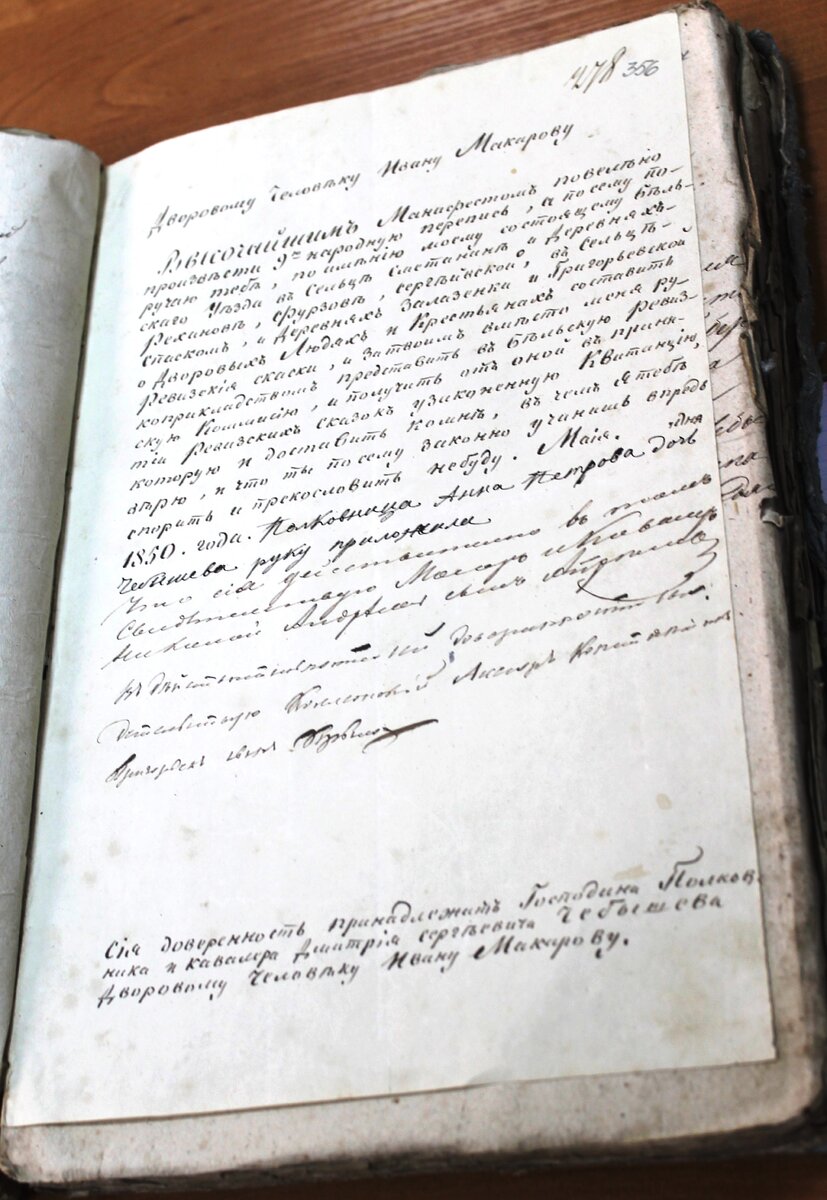 278 356
Дворовому человѣку Ивану Макарову
Высочайшимъ Манифестомъ повелѣно
произвѣсти 9ю народную перепись, а посему по-
ручаю тебѣ, поимѣнию моему состоящему Бѣль-
скаго Уѣзда въ Сельцѣ Сметанинѣ и Деревняхъ
Рехановѣ, Фурзовѣ, Сергѣивской, въ Сельцѣ
Спаскомъ, и Деревняхъ Залазенки и Григорьевской
о Дворовыхъ Людяхъ и Крестьянахъ составить
Ревизскія скаски, и Затвоимъ вмѣсто меня ру-
коприкладствомъ представить въ Бѣльскую Ревиз-
скую Коммисію, и получить отъ оной въ приня-
тіи Ревизскихъ сказокъ узаконенную Квитанцію
которую и доставить комнѣ, въ чемъ я тебѣ
вѣрю, и что ты по сему законно учинишь впредь
спорить и прекословить небуду. Маія. дня
1850. года. Полковница Анна Петрова дочь
Чебышева руку приложила
Что сія дѣйствительно въ томъ
свидѣтельствую Маіоръ и Кавалеръ
Николай Андреевъ сынъ
доверенности
Григорьевъ сынъ
Сія доверенность принадлежитъ Господина Полков-
ника и кавалера Дмитрія Сергѣевича Чебышева
Дворовому Человѣку Ивану Макарову.